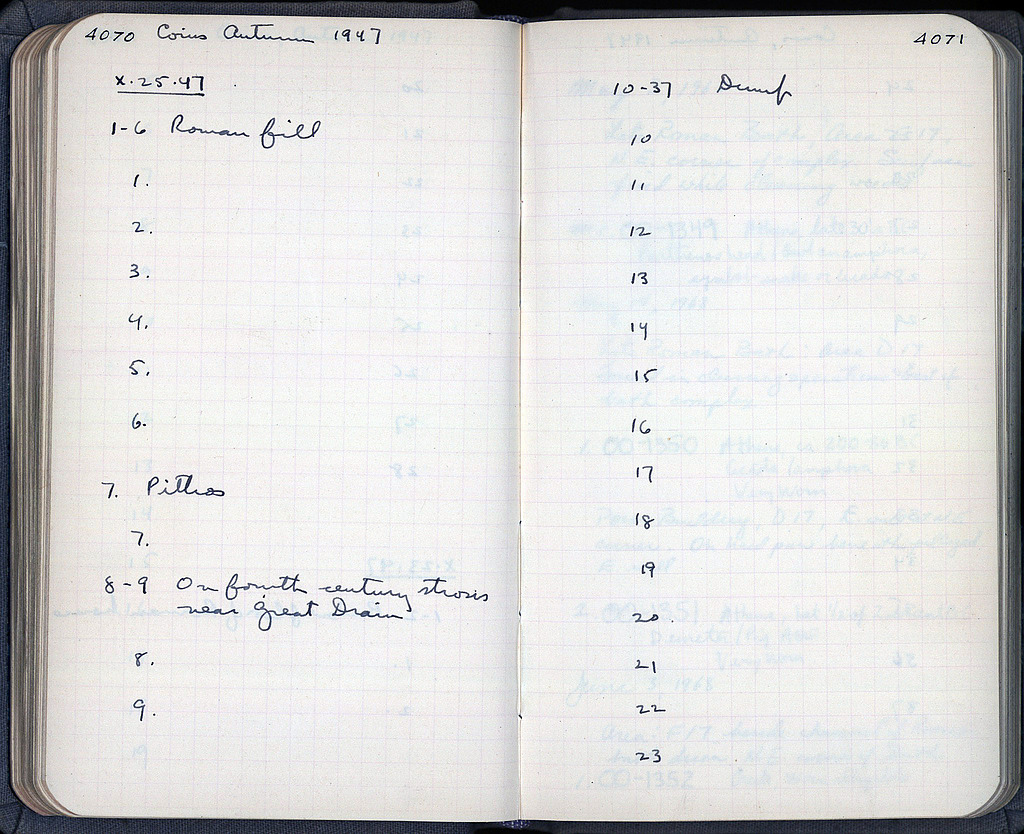 4070 Coins Autumn 1947
X.25.47
1-6 Roman fill
1.
2.
3.
4.
5.
6.
7. Pithos
7.
8-9 On fourth century strosis
near Great Drain
8.
9.
4071
10-37 Dump
10
11
12
13
14
15
16
17
18
19
20.
21
22
23